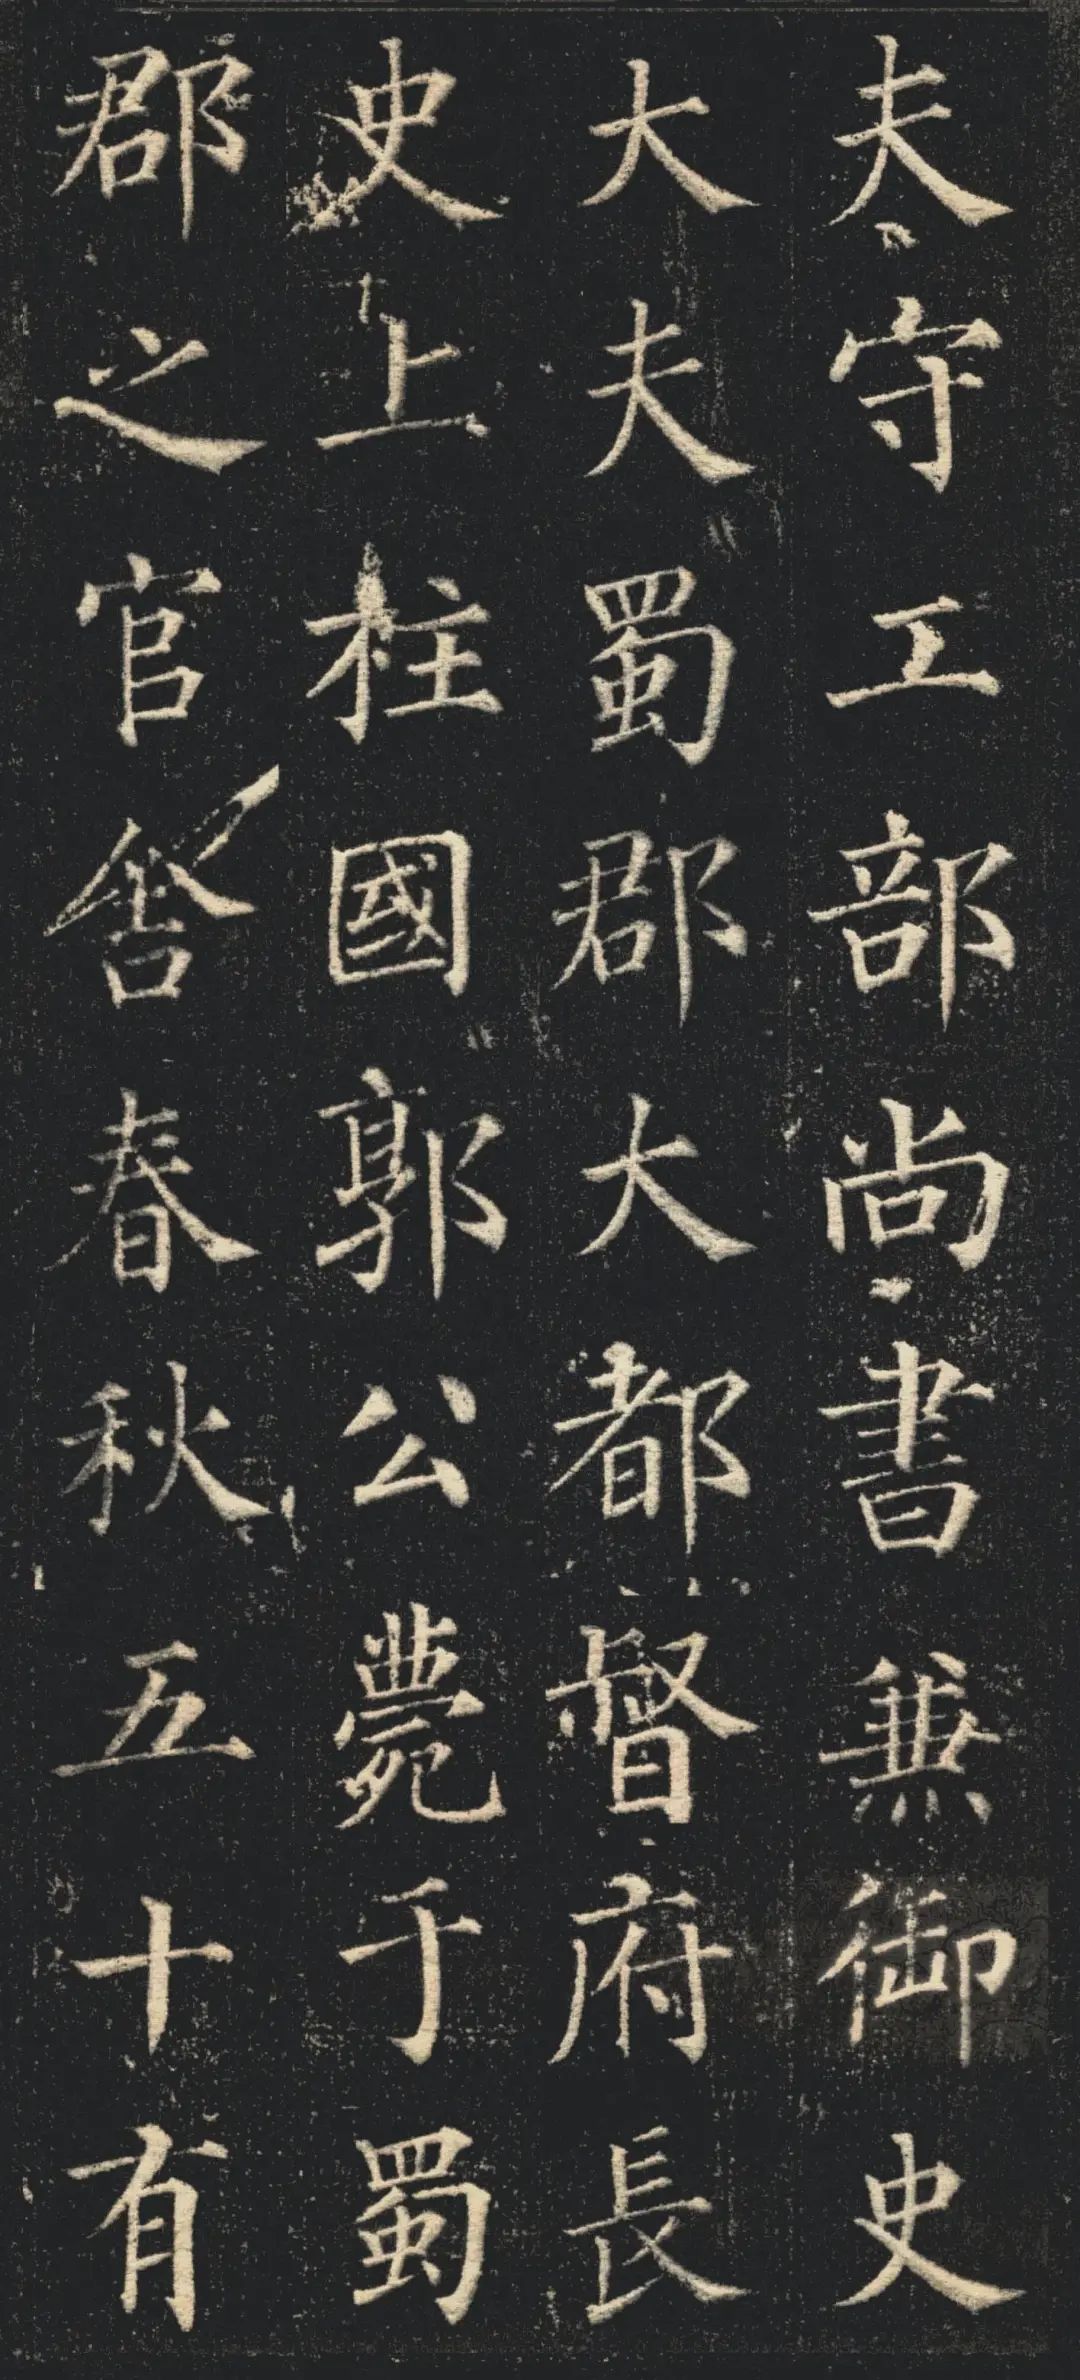 夫守工部尚書兼御史
大夫蜀郡大都督府長
史上柱國郭公薨于蜀
郡之官舍春秋五十有